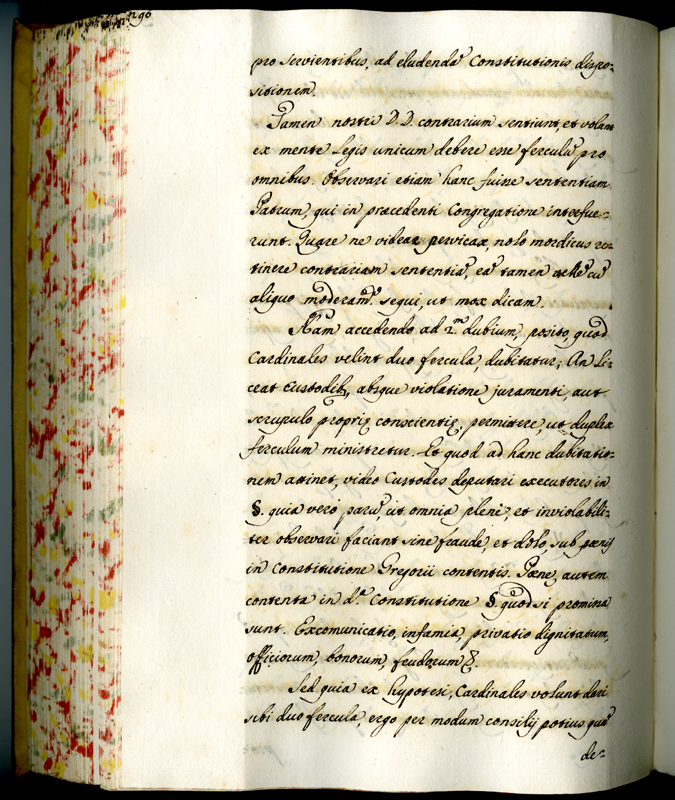 pro servientibus, ad eludendã Constitutionis dispo=
sitionem.
Tamen nostri D. D. contrarium sentiunt, et volunt
ex mente Legis unicum debere esse ferculũ pro
omnibus. Observari etiam hanc fuisse sententiam
Patrum, qui in præcedenti Congregatione interfue=
runt. Quare ne videar pervicax, nolo mordicus re=
tinere contrariam sententiã, eã tamen velle cũ
aliquo moderam.^e sequi, ut mox dicam.
Nam accedendo ad 2.^m dubium, posito, quod
Cardinales velint duo fercula, dubitatur; An Li=
ceat Custodib, absque violatione juramenti, aut
scrupulo proprię conscientię, permittere, ut duplex
ferculum ministretur. Et quod ad hanc dubitatio=
nem attinet, video Custodes deputari executores in
§. quia vero parũ, ut omnia plenè, et inviolabili=
ter observari faciant sine fraude, et dolo, sub pœnis
in Constitutione Gregorii contentis. Pœnę, autem
contenta in d.^a Constitutione §. quod si promina
sunt. Excomunicatio, infamia, privatio dignitatum,
officiorum, bonorum, feudorum &.
Sed quia ex hypotesi, Cardinales volunt dari
sibi duo fercula, ergo per modum consilij potius quã
de=